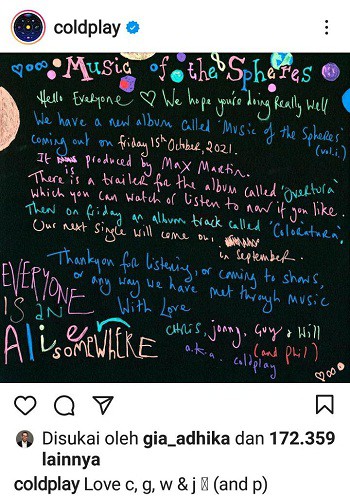 coldplay
Music of the Spheres
Hello Everyone ♡ We hope you're doing Really Well
We have a new album called 'Music of the Spheres'
(vol.i.)
coming out on friday 15th October, 2021.
It is produced by Max Martin.
There is a trailer for the album called 'Overtura'
which you can watch or listen to now if you like.
Then on friday an album track called 'Coloratura'.
Our next single will come out
in September.
Thankyou for listening, or coming to shows,
or any way we have met through music
With Love
EVERYONE
IS aN
Alien
SOMEWHERE
CHRIS, jonny, Guy & Will
(and phil)
a.k.a. coldplay
Disukai oleh gia_adhika dan 172.359
lainnya
coldplay Love c, g, w & j (and p)